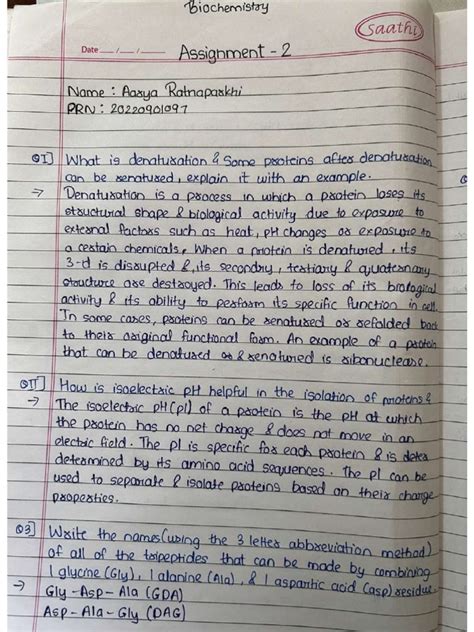 Biochemistry
saathi
Date __/__/__
Assignment - 2
Name : Aarya Ratnaparkhi
PRN : 20220901097
Q1] What is denaturation & Some proteins after denaturation
can be renatured, explain it with an example.
→ Denaturation is a process in which a protein loses its
structural shape & biological activity due to exposure to
external factors such as heat, pH changes or exposure to
a certain chemicals, When a protein is denatured, its
3-d is disrupted & its secondry, tertiary & quaternary
structure are destroyed. This leads to loss of its biological
activity & its ability to perform its specific function in cell.
In some cases, proteins can be renatured or refolded back
to their original functional form. An example of a protein
that can be denatured & renatured is ribonuclease.
QII] How is isoelectric pH helpful in the isolation of proteins &
→ The isoelectric pH(pI) of a protein is the pH at which
the protein has no net charge & does not move in an
electric field. The pI is specific for each protein & is deter
determined by its amino acid sequences. The pI can be
used to separate & isolate proteins based on their charge
properties.
Q3] Write the names (using the 3 letter abbreviation method)
of all of the tripeptides that can be made by combining
1 glycine (Gly), 1 alanine (Ala), & 1 aspartic acid (asp) residue.
→ Gly - Asp - Ala (GDA)
Asp - Ala - Gly (DAG)